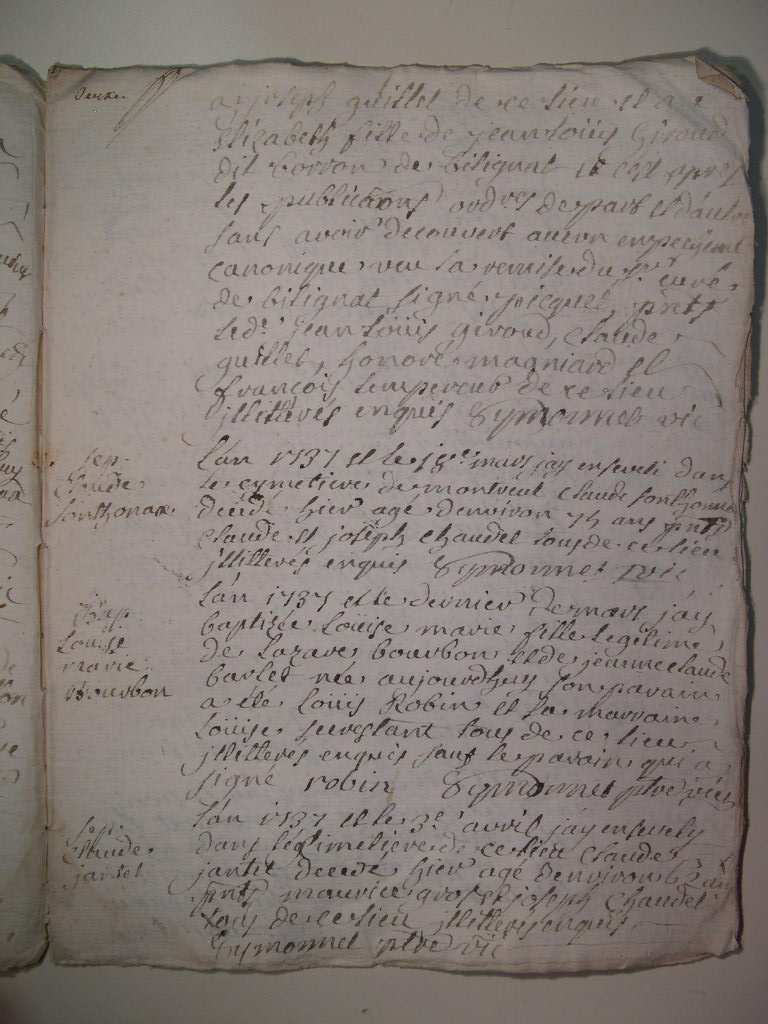 a joseph guillet de ce lieu et a
Elizabeth fille de jean loüis Giroud
dit borron de bilignat et c'est apres
les publications ord.res de part et d'autre
sans avoir decouvert aucun empechement
canonique veu la remise du S.r curé
de bilignat signé picquet, pnts
led.t jean loüis giroud, claude
guillet, honoré magniard et
françois lempereur de ce lieu
jllitérés enquis Symonnet vic
sep.
claude
sonthonax
l'an 1737 et le 18.e mars jay enseveli dans
le cymetiere de montreal claude sonthonax
decedé hier agé denviron 75 ans pnts
claude et joseph chaudet tous de ce lieu
jllitterés enquis Symonnet vic
Bap.
Louise
marie
Bourbon
l'an 1737 et le dernier de mars jáy
baptisée Louise marie fille legitime
de Lazare bourbon et de jeanne claude
barlet née aujourdhuy son parain
a été loüis Robin et sa marraine
loüise tous de ce lieu
jllitteres enquis sauf le parain qui a
signé robin Symonnet ptre vic
sep.
claude
jantet
l'an 1737 et le 3.e avril jáy ensevely
dans le cimetiere de ce lieu claude
jantet decedé hier agé denviron 62 ans
pnts maurice gros et joseph chaudet
tous de ce lieu jllitterés enquis
Symonnet ptre vic